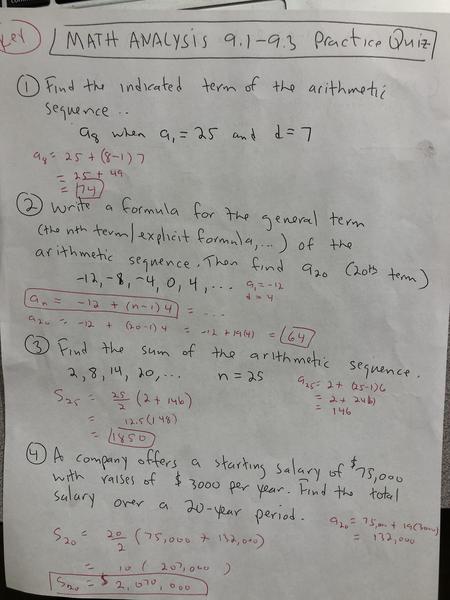 Key
MATH ANALYSIS 9.1-9.3 Practice Quiz
① Find the indicated term of the arithmetic
sequence..
a₈ when a₁ = 25 and d = 7
a₈ = 25 + (8-1) 7
= 25 + 49
= 74
② Write a formula for the general term
(the nth term/explicit formula,...) of the
arithmetic sequence. Then find a₂₀ (20th term)
-12, -8, -4, 0, 4, ...
a₁ = -12
d = 4
aₙ = -12 + (n-1) 4 = ...
a₂₀ = -12 + (20-1) 4 = -12 + 19(4) = 64
③ Find the sum of the arithmetic sequence.
2, 8, 14, 20, ... n = 25
a₂₅ = 2 + (25-1)6
= 2 + 24(6)
= 146
S₂₅ = 25/2 (2 + 146)
= 12.5 (148)
= 1850
④ A company offers a starting salary of $75,000
with raises of $3000 per year. Find the total
salary over a 20-year period.
a₂₀ = 75,000 + 19(3000)
= 132,000
S₂₀ = 20/2 (75,000 + 132,000)
= 10 (207,000)
S₂₀ = $2,070,000